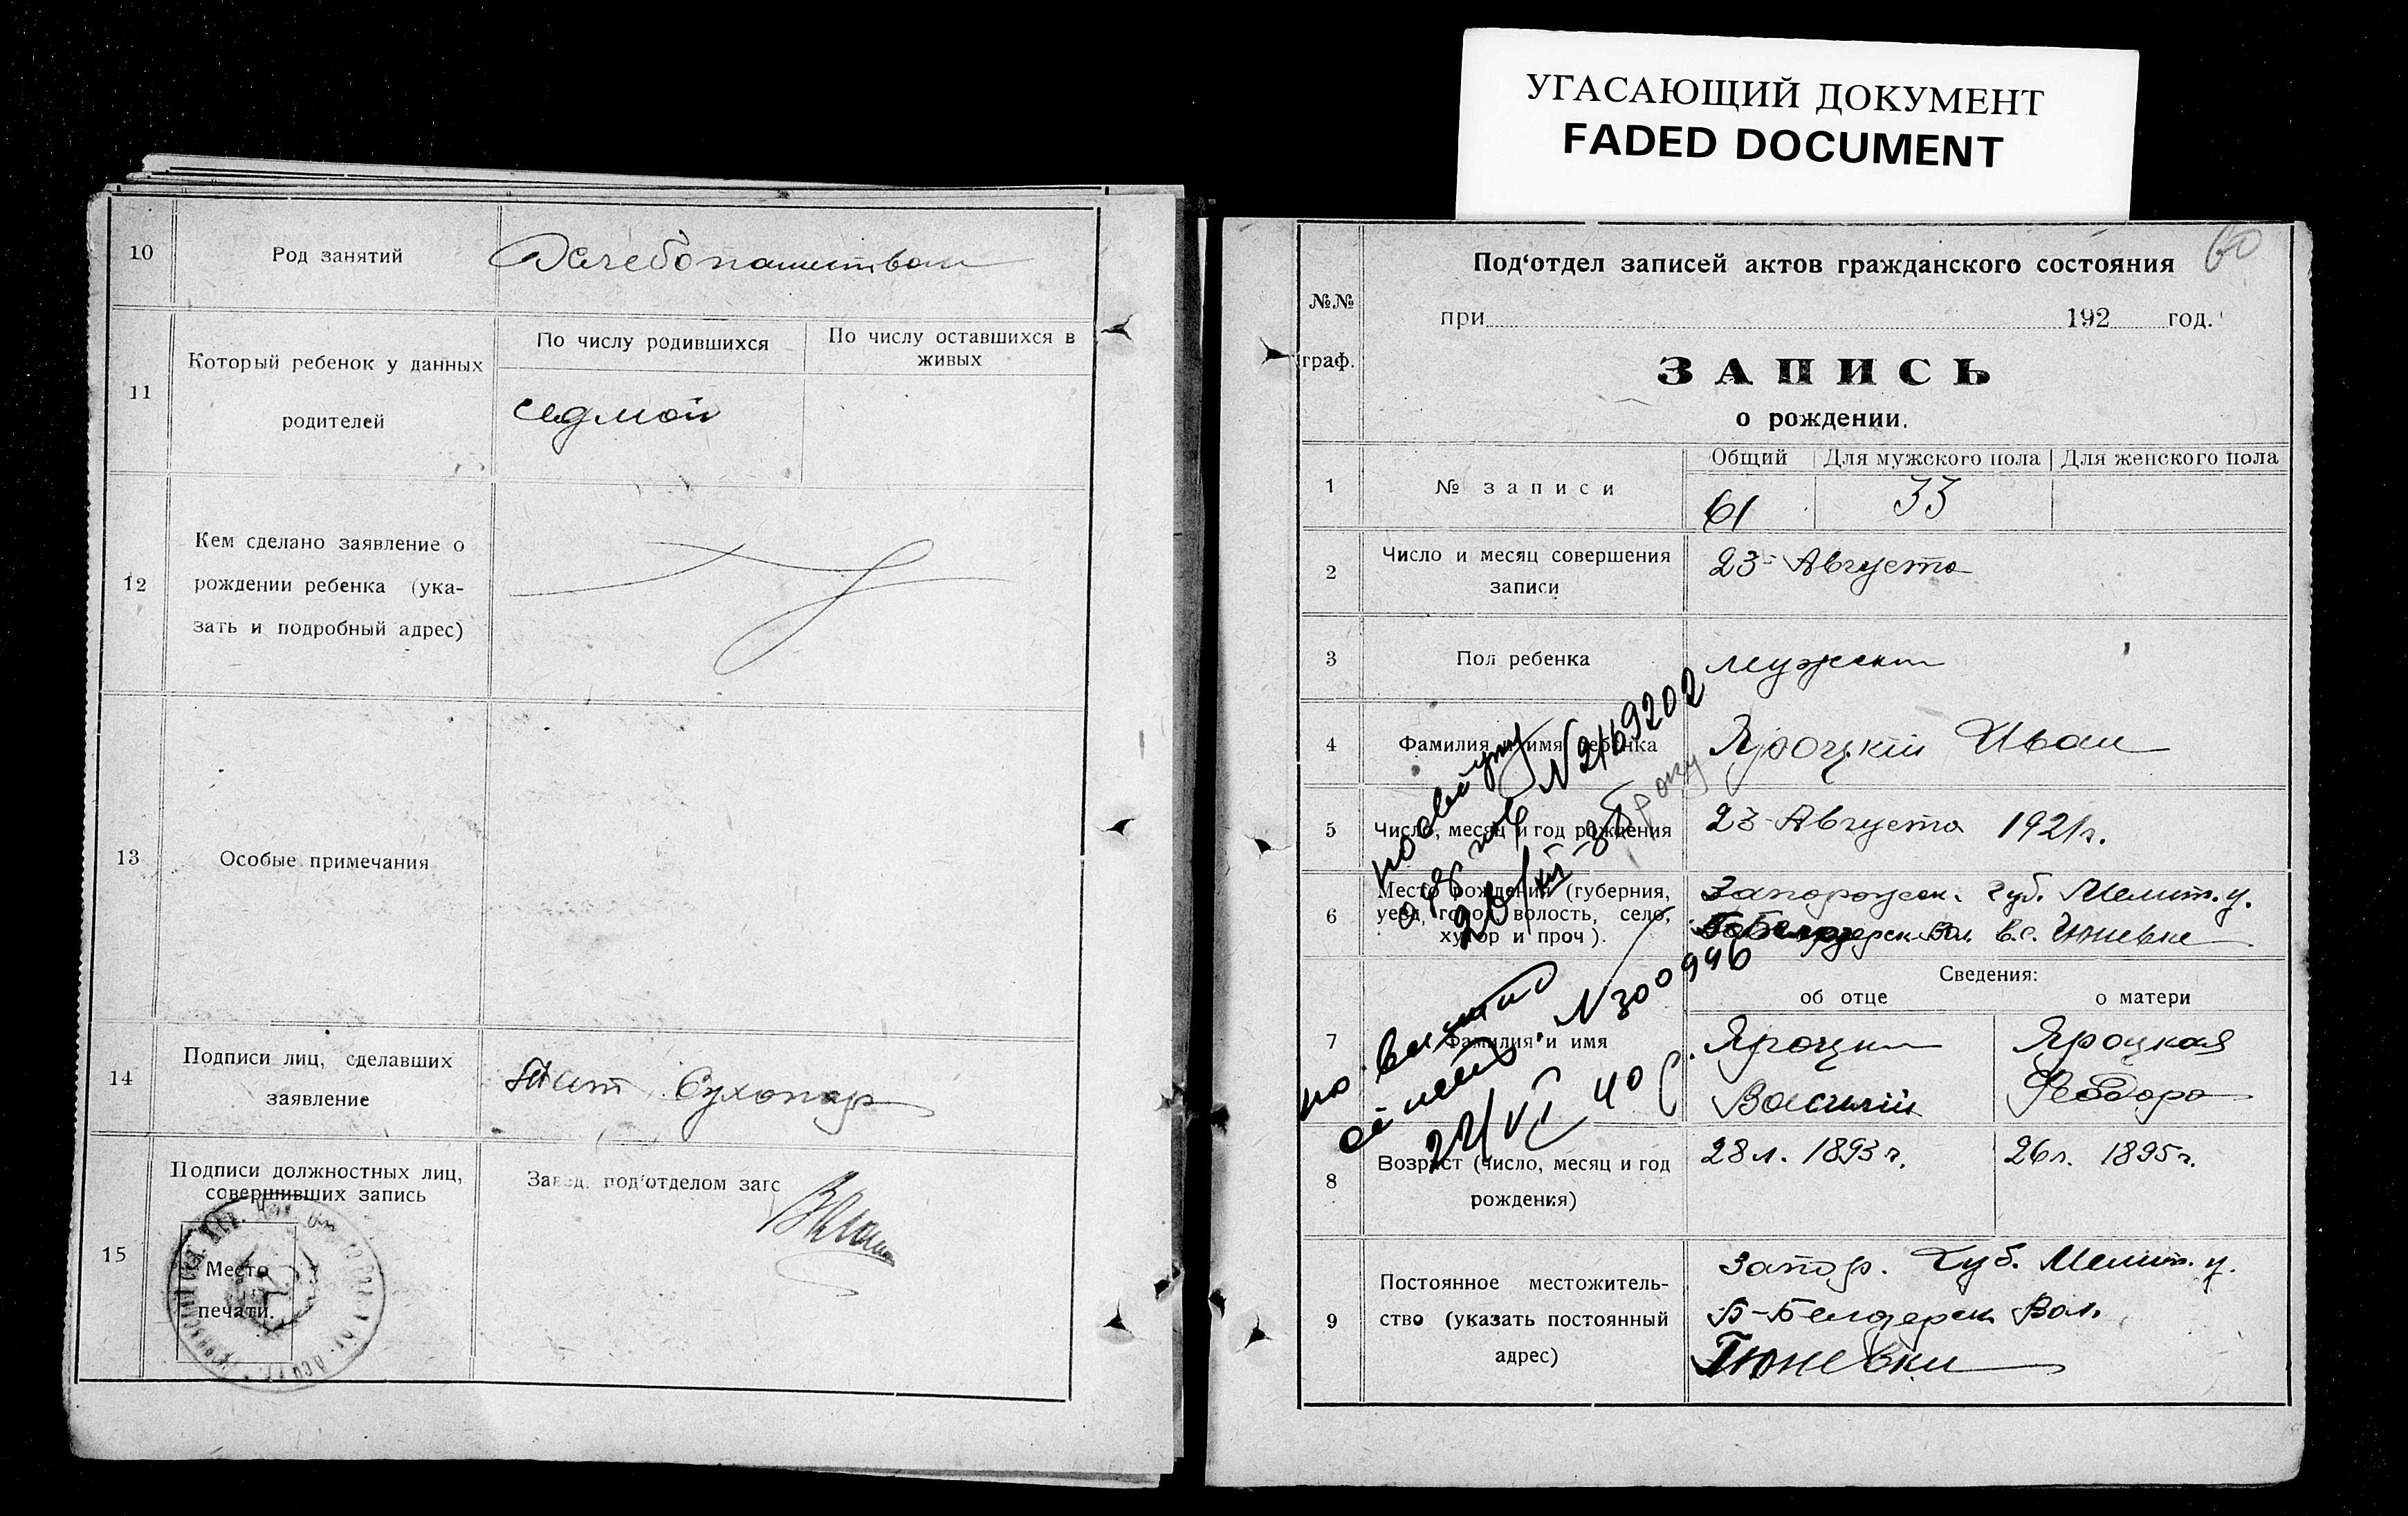 УГАСАЮЩИЙ ДОКУМЕНТ
FADED DOCUMENT
10
Род занятий
Хлебопашеством
11
Который ребенок у данных
родителей
По числу родившихся
По числу оставшихся в
живых
седмой
12
Кем сделано заявление о
рождении ребенка (ука-
зать и подробный адрес)
13
Особые примечания
14
Подписи лиц, сделавших
заявление
Тит Сухопар
15
Подписи должностных лиц,
совершивших запись
Место
печати.
Завед. под‘отделом загс
60
Под‘отдел записей актов гражданского состояния
№№
граф.
при 192 год.
ЗАПИСЬ
о рождении.
1
№ записи
Общий
Для мужского пола
Для женского пола
61
33
2
Число и месяц совершения
записи
23 Августа
3
Пол ребенка
мужск
4
Фамилия и имя ребенка
Яроцкий Иван
5
Число, месяц и год рождения
23 Августа 1921 г.
6
Место рождения (губерния,
уезд, город, волость, село,
хутор и проч).
Запорожск. губ. Мелит. у.
в.с.
Сведения:
об отце
о матери
7
Фамилия и имя
Яроцки
Василий
Яроцкая
Феодора
8
Возраст (число, месяц и год
рождения)
28 л. 1893 г.
26 л. 1895 г.
9
Постоянное местожитель-
ство (указать постоянный
адрес)
Запор. Губ. Мелит. у.
Б-Белозерск Вол.
Тюневки
N 2169202
N 300946
22/VI 40